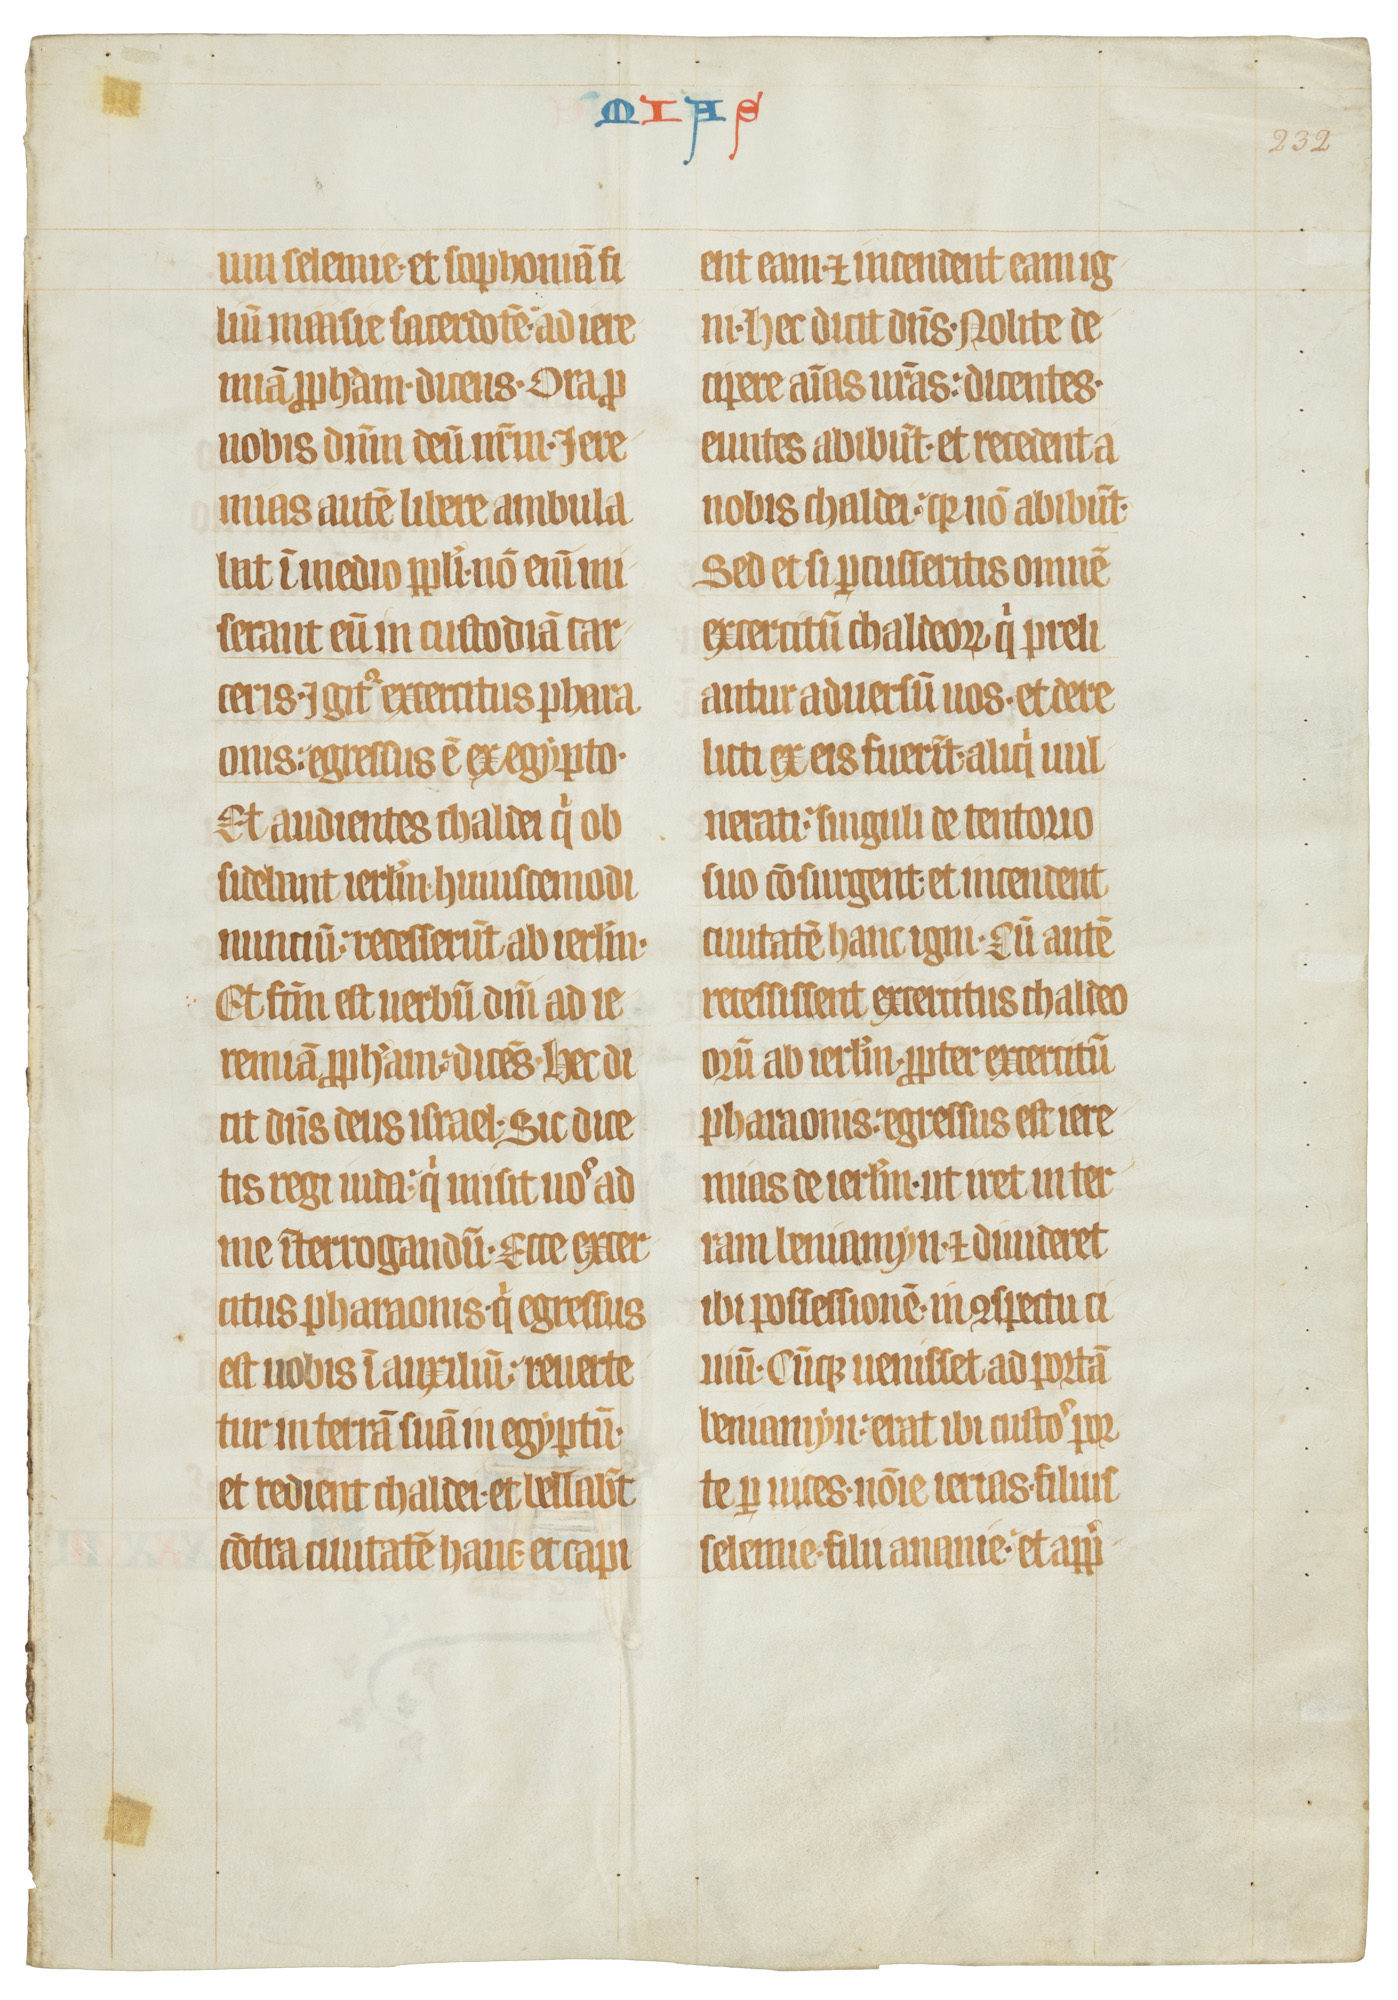 MIAS
232
um selemie· et sophoniā fi
liū maasie sacerdotē· ad iere
miā ꝓph̄am· dicens· Ora ꝓ
nobis dn̄m deū nr̄m· Iere
mias autē libere ambula
bat ī medio ppl̄i· nō eni᷒m mi
serant eū in custodiā car
ceris· Igit᷑ excercitus phara
onis· egressus ē ex egypto·
Et audientes chaldei qͥ ob
sidebant ierl̄m· huiuscemodi
nunciū· recesserūt ab ierl̄m·
Et fc̄m est uerbū dn̄i ad ie
remiā ꝓph̄am· dicēs· Hec di
cit dn̄s deus israel· Sic dice
tis regi iuda· qͥ misit uoˢ ad
me īterrogandū· Ecce excer
citus pharaonis· qͥ egressus
est uobis ī auxiliū· reuerte
tur in terrā suā in egyptū·
et redient chaldei· et bellabūt
cōtra ciuitatē hanc· et capi
ent eam· ⁊ incendent eam ig
ni· Hec dicit dn̄s· Nolite de
cipere aīas ur̄as· dicentes·
euntes abibūt· et recedent a
nobis chaldei· qꝛ nō abibūt·
Sed et si ꝑcusseritis omnē
excercitū chaldeoꝝ qͥ preli
antur aduersū uos· et dere
licti ex eis fuerīt· aliqͥ uul
nerati· singuli de tentorio
suo cōsurgent· et incendent
ciuitatē hanc igni· Cū autē
recessissent excercitus chaldeo
orū ab ierl̄m· ꝓpter excercitū
pharaonis· egressus est iere
mias de ierl̄m· ut iret in ter
ram beniamyn· ⁊ diuideret
ibi possessionē· in ꝯspectu ci
uiū· Cūqꝫ uenisset ad portā
beniamyn· erat ibi custoˢ por
te ꝑ uices· nōie ierias· filius
selemie· filii ananie· et app̄